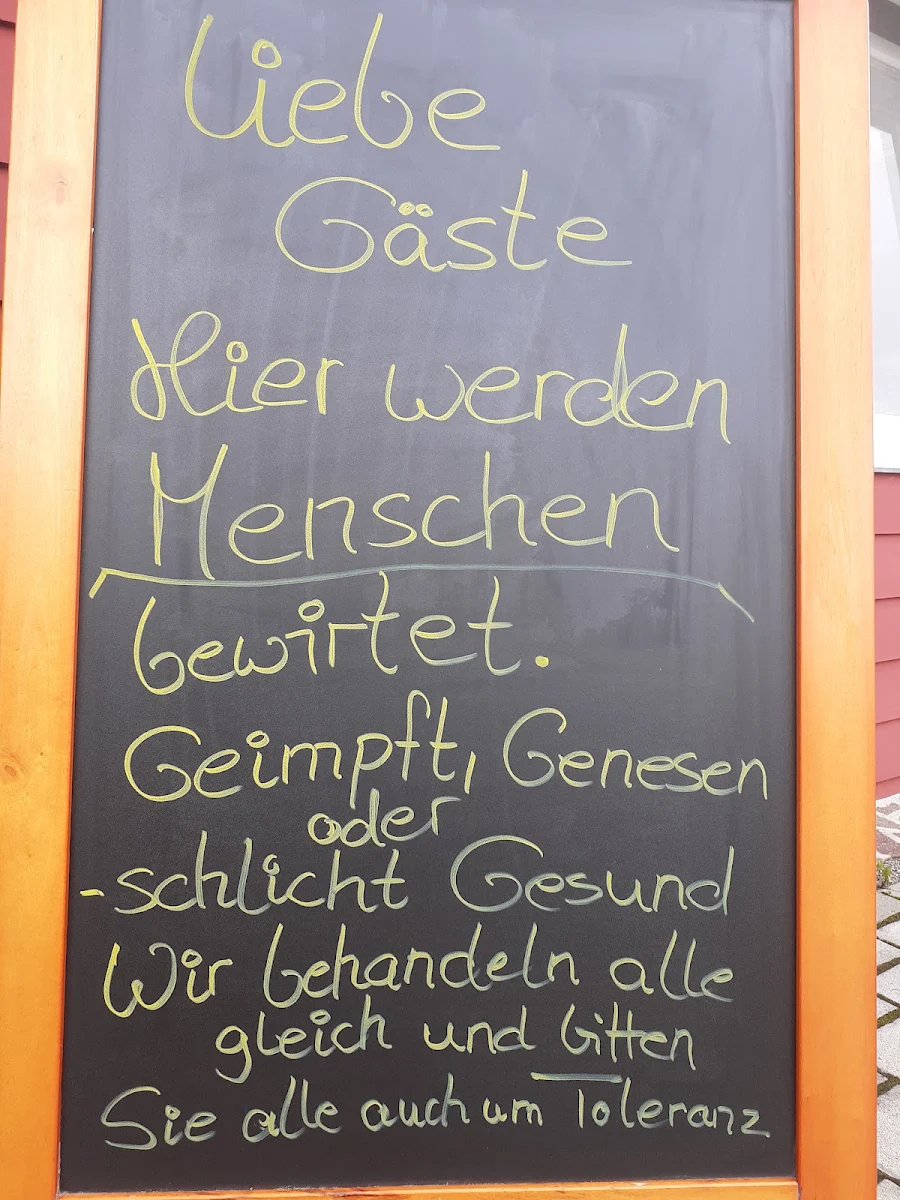 Liebe
Gäste
Hier werden
Menschen
bewirtet.
Geimpft, Genesen
oder
-schlicht Gesund
Wir behandeln alle
gleich und bitten
Sie alle auch um Toleranz